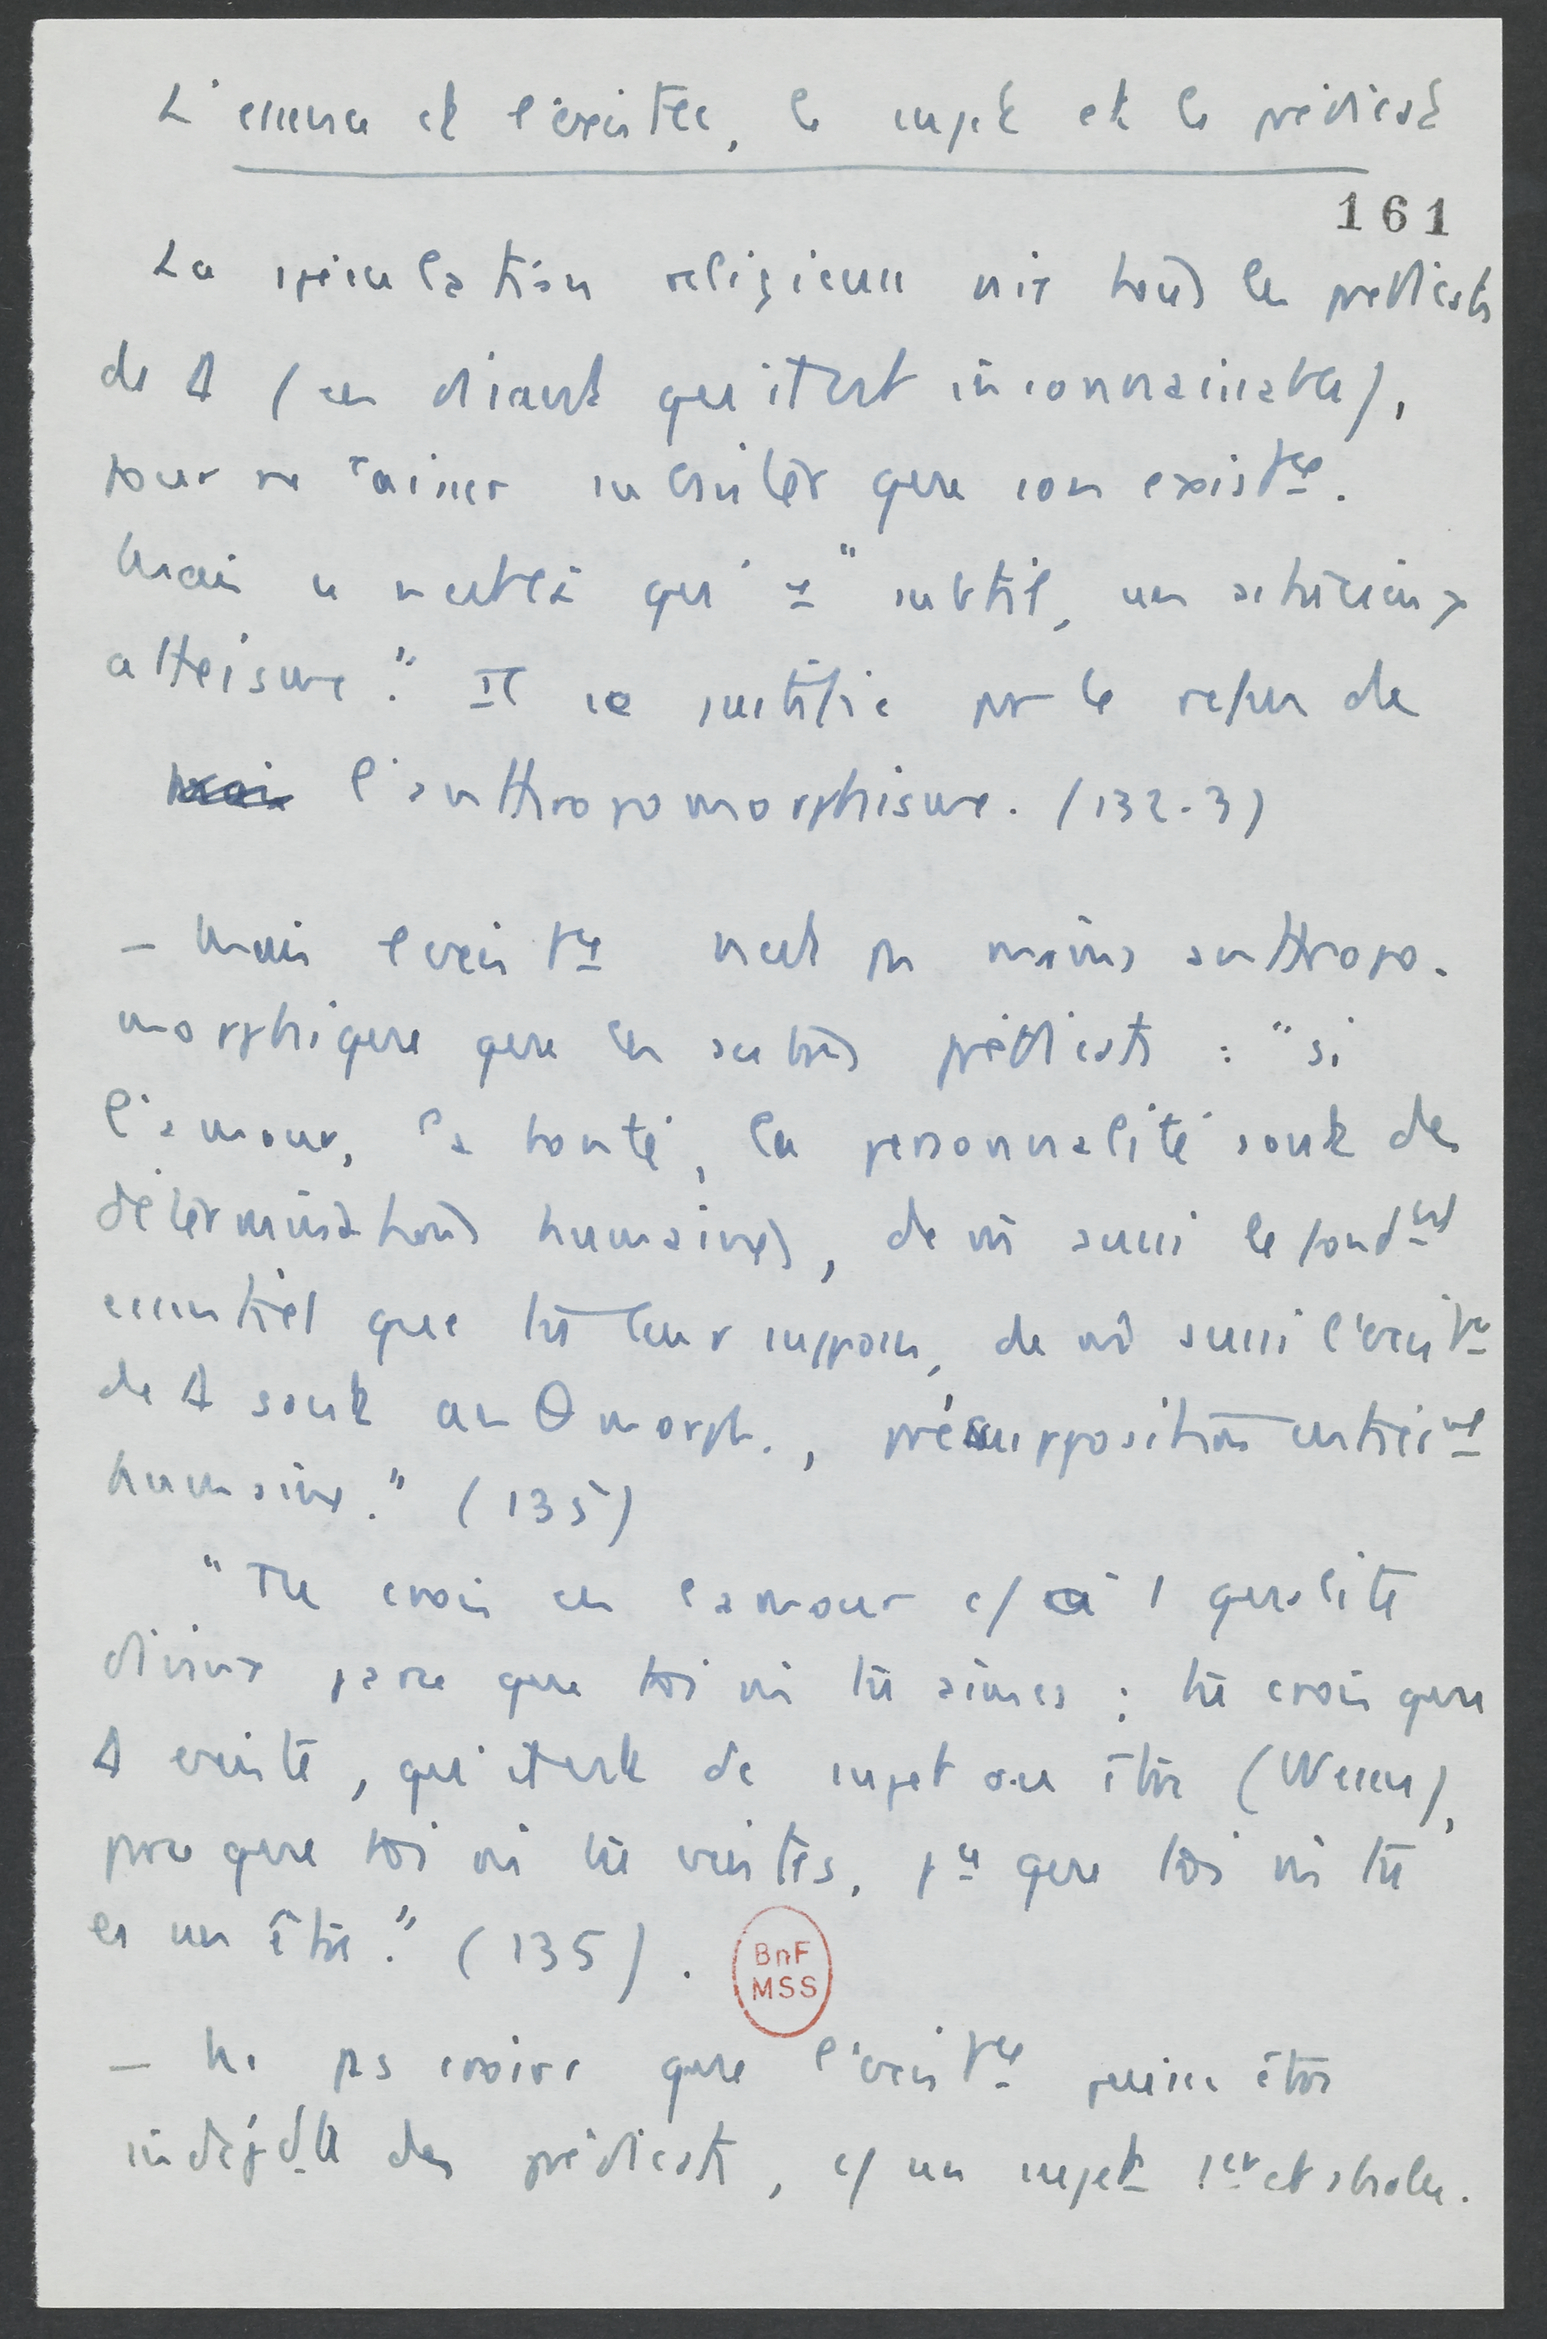 L'essence et l'existce, le sujet et le prédicat
161
La spéculation religieuse nie tous les prédicats
de Δ (en disant qu'il est inconnaissable),
pour ne laisser subsister que son existce.
Mais ce n'est là qu'1 "subtil, un astucieux
athéisme." Il se justifie par le refus de
l'anthropomorphisme. (132-3)
– Mais l'existce n'est pas moins anthropo-
morphique que les autres prédicats : "si
l'amour, la bonté, la personnalité sont des
déterminations humaines, de m̂ aussi le fondmt
essentiel que tu leur supposes, de m̂ aussi l'existce
de Δ sont anθmorph., présupposition entièmt
humaine." (135)
"Tu crois en l'amour c/ à 1 qualité
divine parce que toi m̂ tu aimes ; tu crois que
Δ existe, qu'il est dc sujet ou être (Wesen),
parce que toi m̂ tu existes, pce que toi m̂ tu
es un être." (135).
BnF
MSS
– Ne pas croire que l'existce puisse être
indépdte des prédicats, c/ un sujet 1er et absolu.